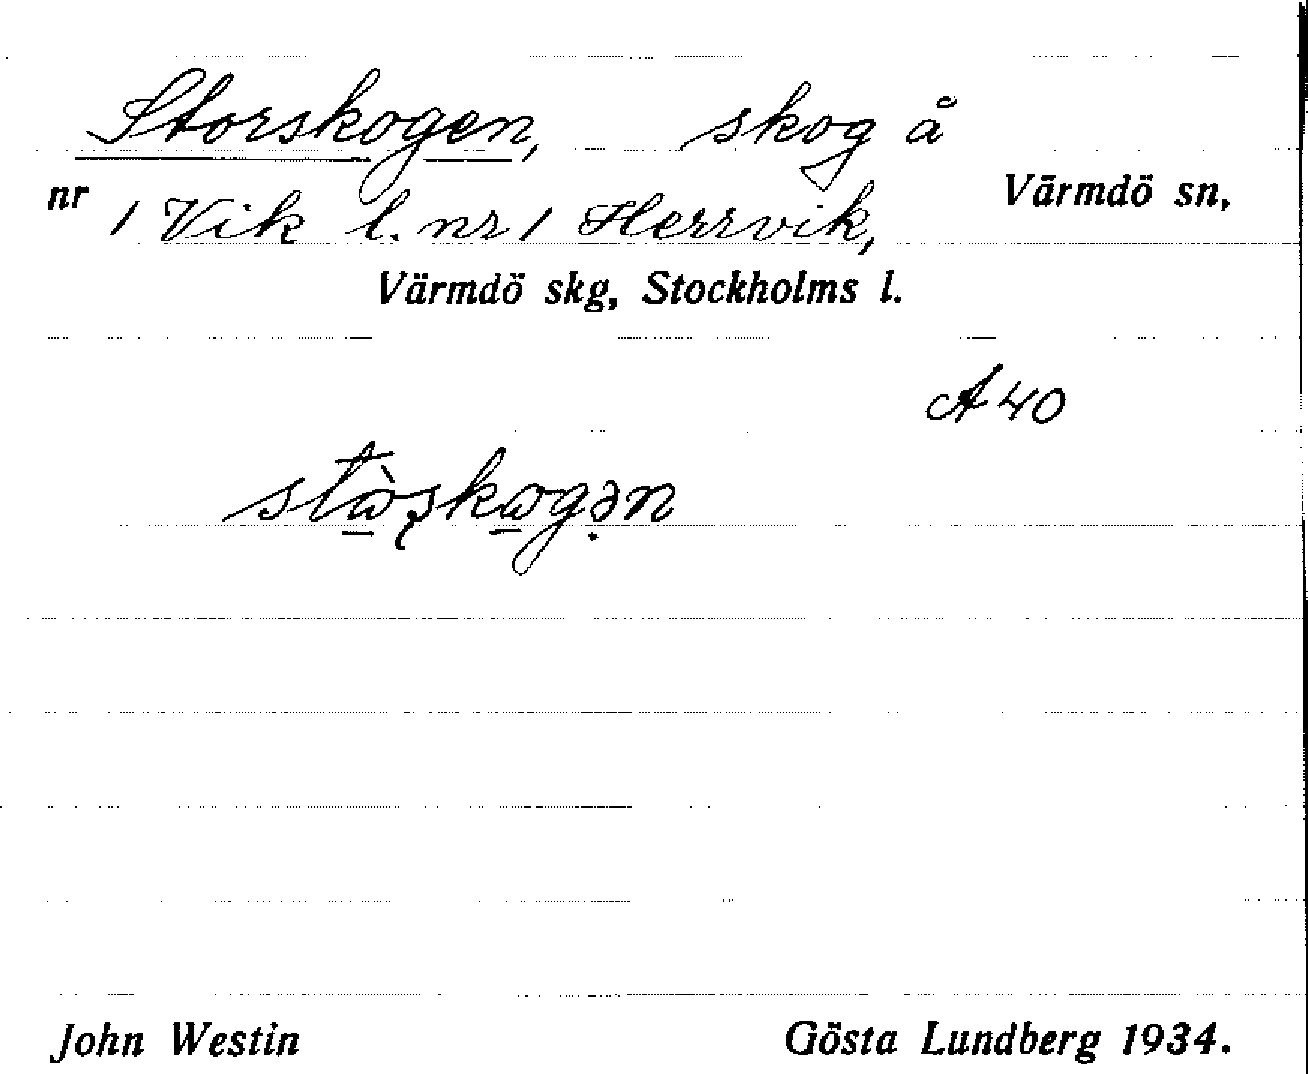 Storskogen, skog å
nr 1 Vik l. nr 1 Herrvik, Värmdö sn,
Värmdö skg, Stockholms l.
A 40
John Westin Gösta Lundberg 1934.